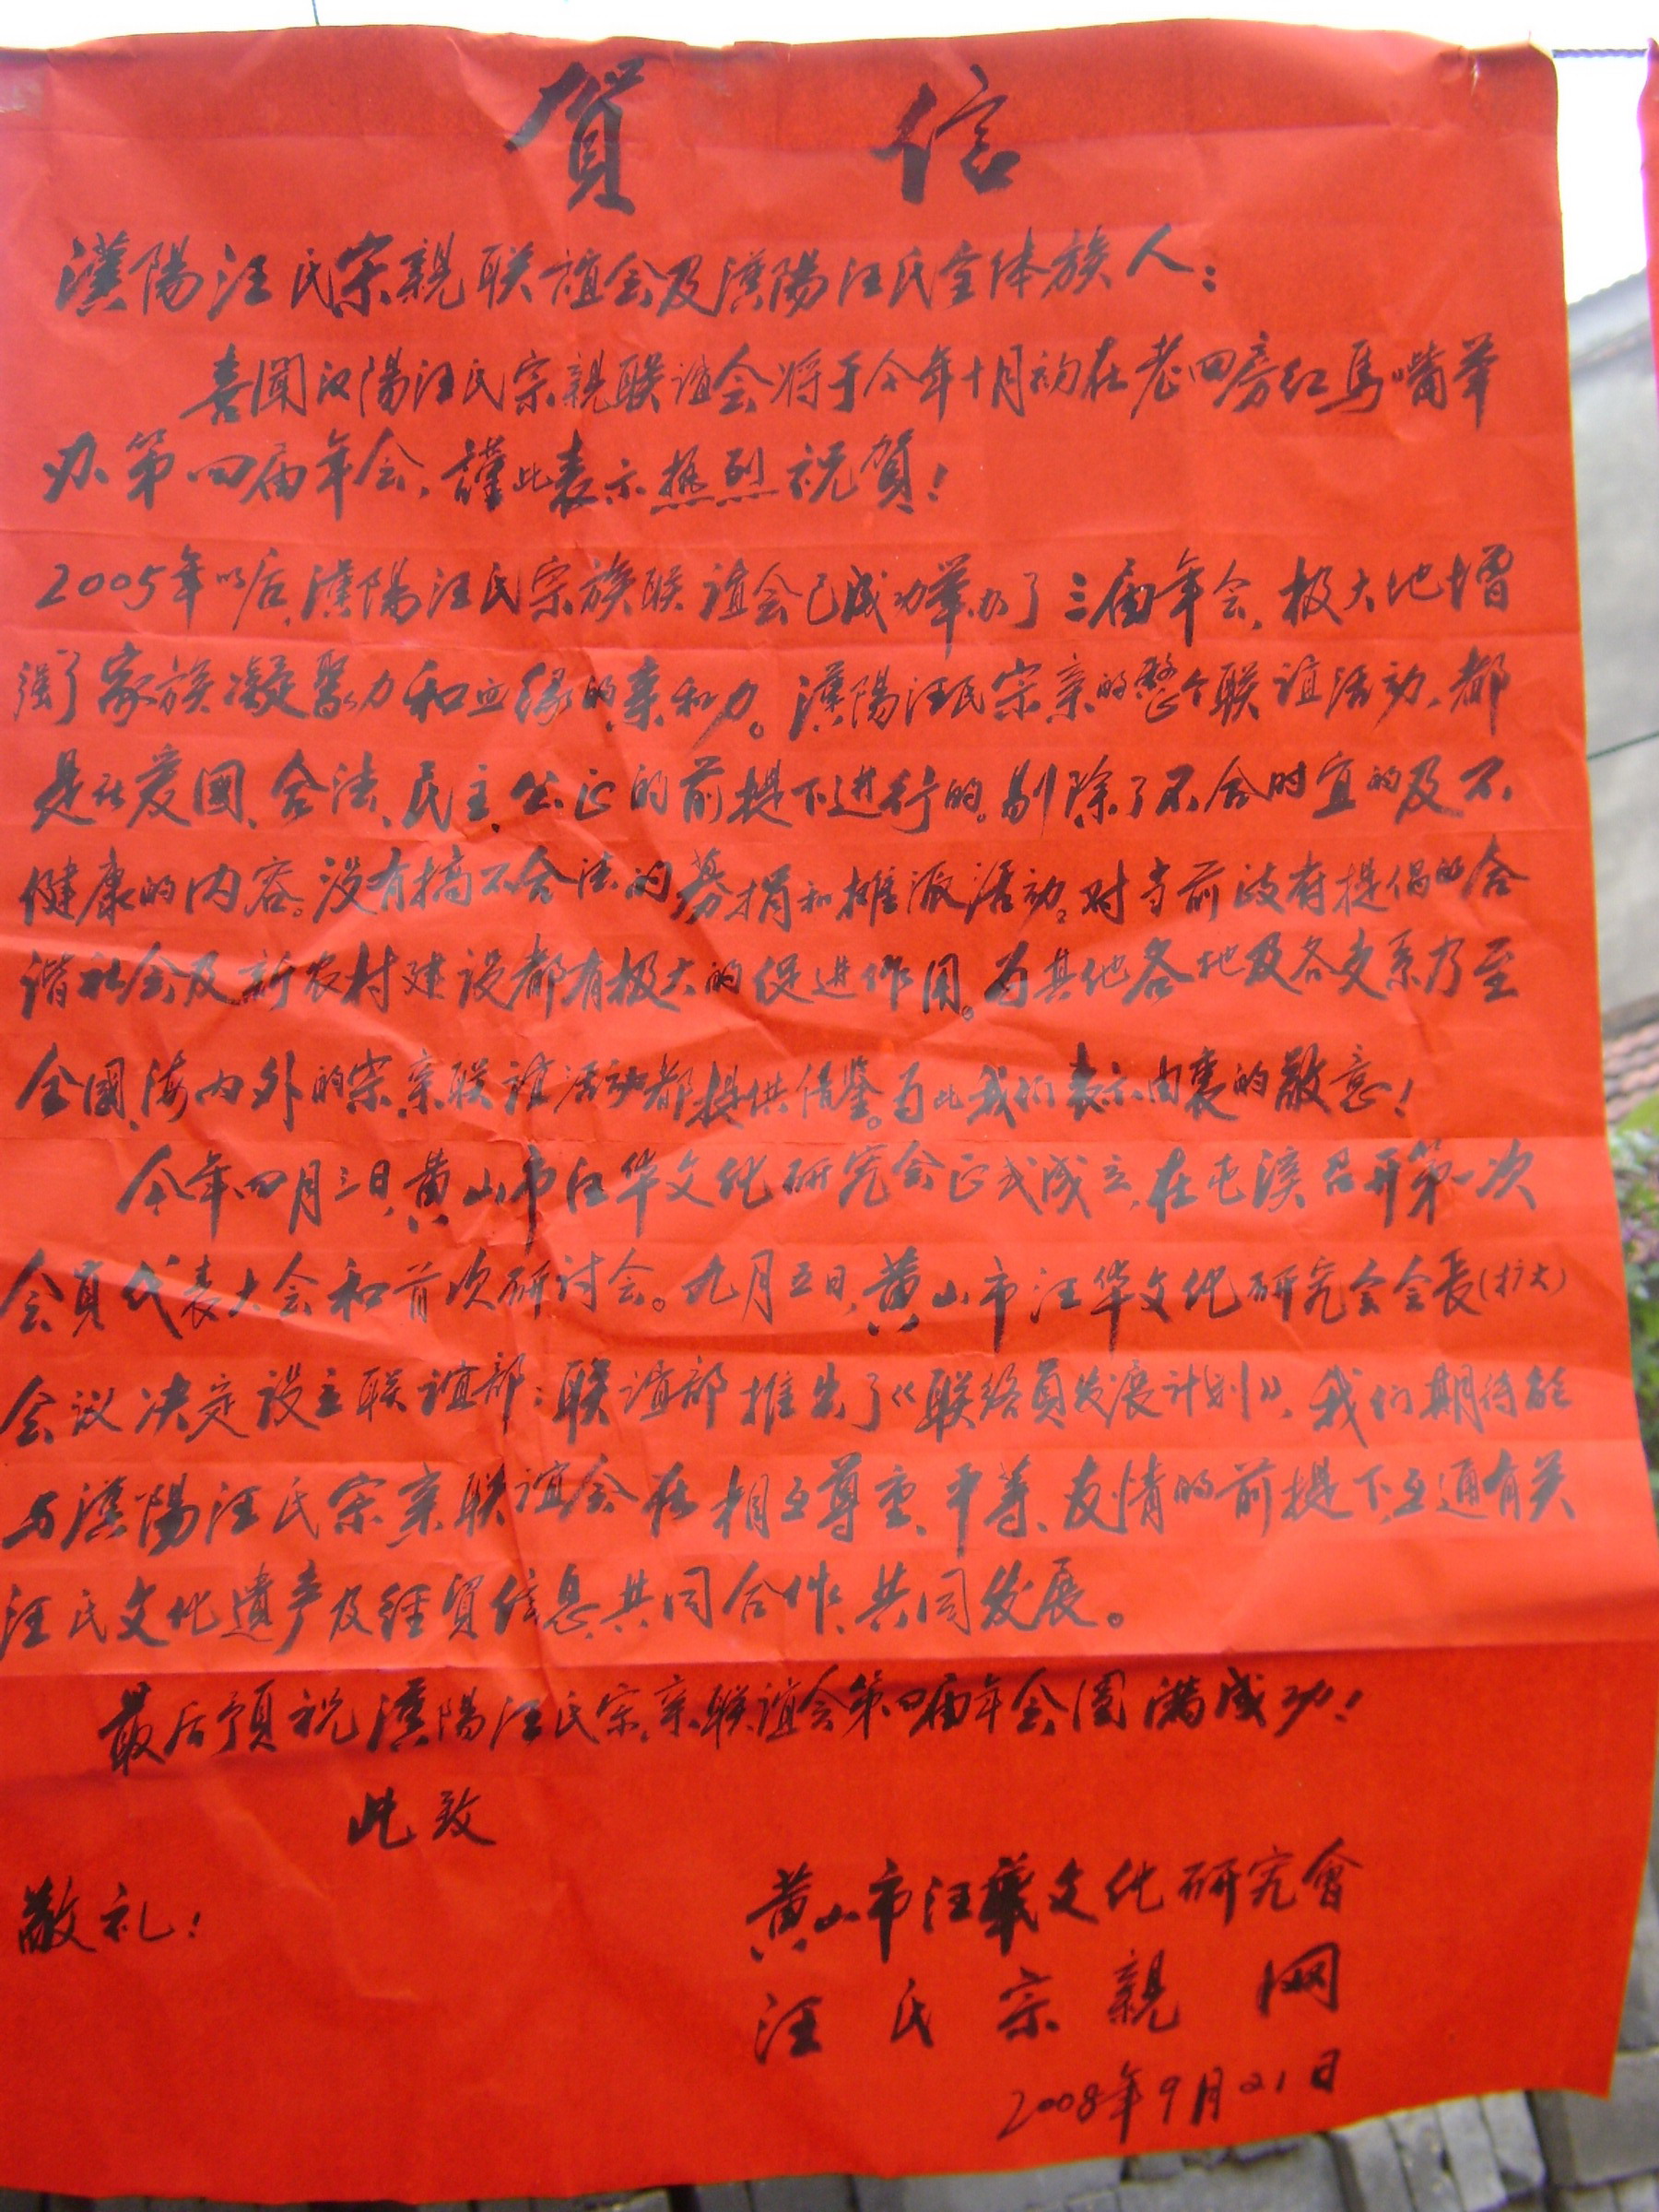 賀 信
漢陽汪氏宗親联誼会及漢陽汪氏全体族人：
喜闻汉陽汪氏宗親联谊会将于今年十月初在老四房红馬嘴举
办第四届年会，謹此表示热烈祝賀！
2005年以后，漢陽汪氏宗族联谊会已成功举办了三届年会，极大地增
强了家族凝聚力和血缘的亲和力。漢陽汪氏宗亲的整个联谊活动，都
是在爱國、合法、民主、公正的前提下进行的。剔除了不合时宜的及不
健康的内容。没有搞不合法的募捐和摊派活动。对当前政府提倡的合
谐社会及新农村建设都有极大的促进作用。为其他各地及各支系乃至
全國、海内外的宗亲联谊活动都提供借鉴。为此我们表示由衷的敬意！
今年四月三日，黄山市汪华文化研究会正式成立，在屯溪召开第一次
会員代表大会和首次研讨会。九月五日，黄山市汪华文化研究会会長(扩大)
会议决定设立联谊部；联谊部推出了《联络員发展计划》，我们期待能
与漢陽汪氏宗亲联谊会在相互尊重、平等、友情的前提下，互通有关
汪氏文化遗产及经贸信息，共同合作，共同发展。
最后预祝漢陽汪氏宗亲联谊会第四届年会圆满成功！
此致
敬礼！
黄山市汪華文化研究會
汪氏宗親网
2008年9月21日